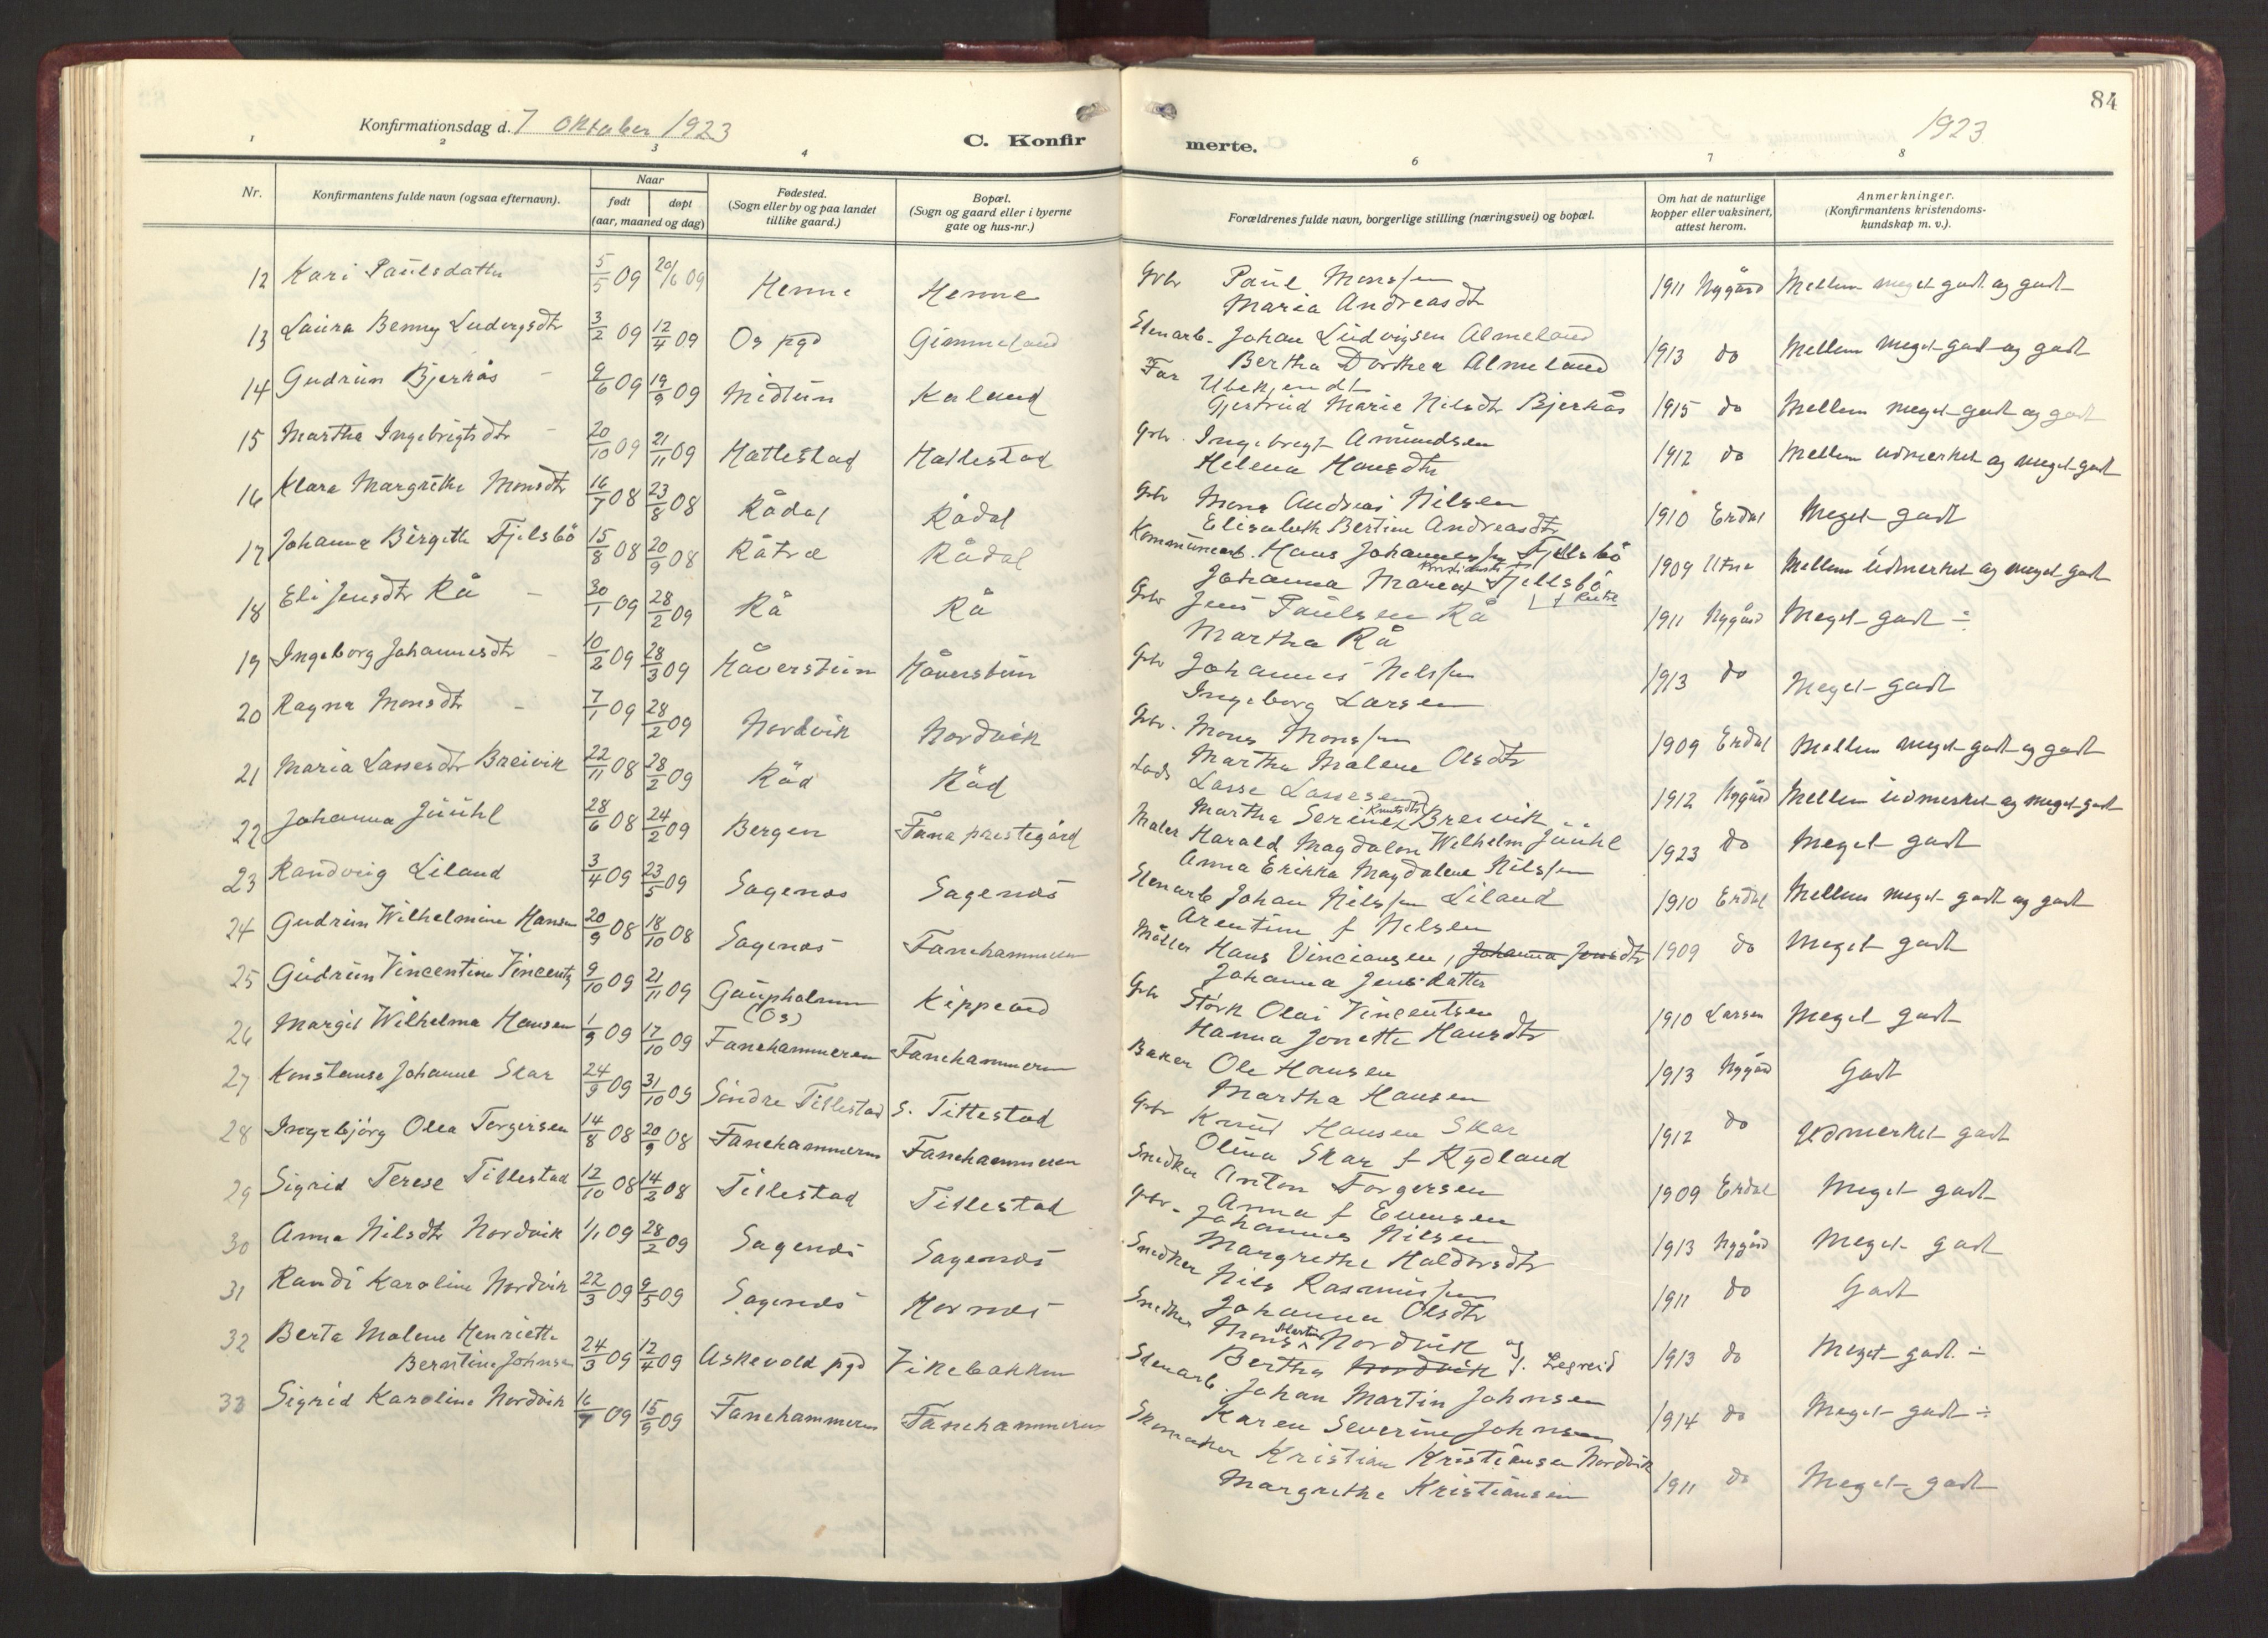 84
Konfirmationsdag d. 7 oktober 1923
C. Konfirmerte.
1923
1 2 3 4 6 7 8
Nr.
Konfirmantens fulde navn (ogsaa efternavn).
Naar
født
døpt
(aar, maaned og dag)
Fødested.
(Sogn eller by og paa landet
tillike gaard.)
Bopæl.
(Sogn og gaard eller i byerne
gate og hus-nr.)
Forældrenes fulde navn, borgerlige stilling (næringsvei) og bopæl.
Om hat de naturlige
kopper eller vaksinert,
attest herom.
Anmerkninger.
(Konfirmantens kristendoms-
kundskap m. v.).
12 Kari Paulsdatter 5/5 09 20/6 09 Henne Henne Gbr Paul Monssen
Maria Andreasdtr 1911 Nygård Mellem meget godt og godt
13 Laura Benny Ludvigsdtr 3/2 09 12/4 09 Os pgd Gimmeland Stenarb. Johan Ludvigsen Almeland
Bertha Dorthea Almeland 1913 do Mellem meget godt og godt
14 Gudrun Bjerkås 9/6 09 19/9 09 Midtun Kaland Far Ubekjendt
Gjertrud Marie Nilsdtr Bjerkås 1915 do Mellem meget godt og godt
15 Martha Ingebrigtsdtr 20/10 09 21/11 09 Hatlestad Hatlestad Gbr. Ingebregt Amundsen
Helena Hansdtr 1912 do Mellem udmerket og meget godt
16 Klara Margrethe Monsdtr 16/7 08 23/8 08 Rådal Rådal Gbr Mons Andreas Nilsen
Elisabeth Bertine Andreasdtr 1910 Erdal Meget godt
17 Johanna Birgitte Fjelsbö 15/8 08 20/9 08 Råtræ Rådal Kommunearb. Hans Johannessen Fjellsbö
Johanna Maria Fjellsbö 1909 Utne Mellem udmerket og meget godt
18 Eli Jensdtr Rå 30/1 09 28/2 09 Rå Rå Gbr Jens Paulsen Rå
Martha Rå 1911 Nygård Meget godt ÷
19 Ingeborg Johannesdtr 10/2 09 28/3 09 Håverstun Håverstun Gbr Johannes Nilssen
Ingeborg Larsen 1913 do Meget godt
20 Ragna Monsdtr 7/1 09 28/2 09 Nordvik Nordvik Gbr. Mons Monssen
Martha Malene Olsdtr 1909 Erdal Mellem meget godt og godt
21 Maria Lassesdtr Breivik 22/11 08 28/2 09 Råd Råd Lods Lasse Lassesen
Martha Serine Knutsdtr Breivik 1912 Nygård Mellem udmerket og meget godt
22 Johanna Juuhl 28/6 08 24/2 09 Bergen Fana prestegård Maler Harald Magdalon Wilhelm Juuhl
Anna Erikka Magdalene Nilssen 1923 do Meget godt
23 Randvig Liland 3/4 09 23/5 09 Sagenæs Sagenæs Stenarb Johan Nilssen Liland
Arentine f Nelsen 1910 Erdal Mellem meget godt og godt
24 Gudrun Wilhelmine Hansen 20/9 08 18/10 08 Sagenæs Fanehammeren Möller Hans Vinciansen, Johanna Jensdtr
Johanna Jensdatter 1909 do Meget godt
25 Gudrun Vincentine Vincents 9/10 09 21/11 09 Gaupholmen
(Os) Kippeand Gbr Störk Olai Vincentsen
Hanna Jonette Hansdtr 1910 Larsen Meget godt
26 Margit Wilhelma Hansen 1/9 09 17/10 09 Fanehammeren Fanehammeren Baker Ole Hansen
Martha Hansen 1913 Nygård Godt
27 Konstanse Johanne Skar 24/9 09 31/10 09 Söndre Titlestad S. Titlestad Gbr Knud Hansen Skar
Olina Skar f Rydland 1912 do Udmerket godt
28 Ingebjörg Olea Torgersen 14/8 08 20/9 08 Fanehammeren Fanehammeren Snedker Anton Torgersen
Anna f Evensen 1909 Erdal Meget godt
29 Sigrid Terese Titlestad 12/10 08 14/2 08 Titlestad Titlestad Gbr. Johannes Nilsen
Margrethe Haldorsdtr 1913 Nygård Meget godt
30 Anna Nilsdtr Nordvik 1/1 09 28/2 09 Sagenæs Sagenæs Snedker Nils Rasmussen
Johanna Olsdtr 1911 do Godt
31 Randi Karoline Nordvik 22/3 09 9/5 09 Sagenæs Hornæs Snedker Mons Martin Nordvik og
Bertha Nordvik f. Legreid 1913 do Meget godt ÷
32 Berta Malene Henriette
Berntine Johnsen 24/3 09 12/4 09 Askevold pgd Vikebakken Stenarb. Johan Martin Johnsen
Karen Severine Johnsen 1914 do Meget godt ÷
33 Sigrid Karoline Nordvik 16/7 09 15/9 09 Fanehammeren Fanehammeren Skomaker Kristian Kristiansen Nordvik
Margrethe Kristiansen 1911 do Meget godt